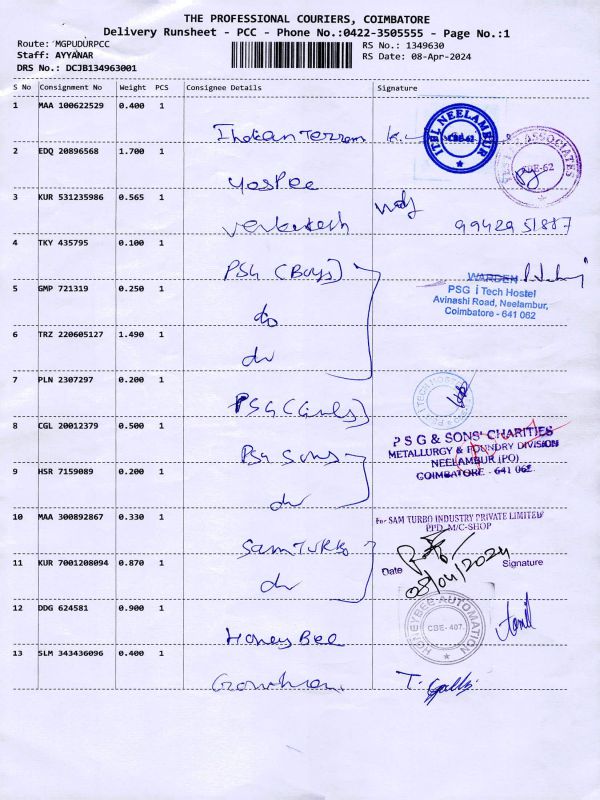 THE PROFESSIONAL COURIERS, COIMBATORE
Delivery Runsheet - PCC - Phone No.:0422-3505555 - Page No.:1
Route: MGPUDURPCC
RS No.: 1349630
Staff: AYYANAR
RS Date: 08-Apr-2024
DRS No.: DCJB134963001
S No Consignment No Weight PCS Consignee Details Signature
1 MAA 100622529 0.400 1
ITBL NEELAMBUR
ASSOCIATES
CBE-62
2 EDQ 20896568 1.700 1
yospee
3 KUR 531235986 0.565 1
Venkatesh 9942951887
4 TKY 435795 0.100 1
PSG (Boys)
WARDEN
PSG iTech Hostel
Avinashi Road, Neelambur,
Coimbatore - 641 062
5 GMP 721319 0.250 1
do
6 TRZ 220605127 1.490 1
do
7 PLN 2307297 0.200 1
PSG (Girls)
8 CGL 20012379 0.500 1
PSG Sons
P S G & SONS' CHARITIES
METALLURGY & FOUNDRY DIVISION
NEELAMBUR (PO)
COIMBATORE - 641 062.
9 HSR 7159089 0.200 1
do
10 MAA 300892867 0.330 1
Sam Turbo
For SAM TURBO INDUSTRY PRIVATE LIMITED
PPD M/C-SHOP
11 KUR 7001208094 0.870 1
do
Date 08/04/2024 Signature
12 DDG 624581 0.900 1
Honey Bee
HONEYBEE AUTOMATION
CBE- 407.
13 SLM 343436096 0.400 1